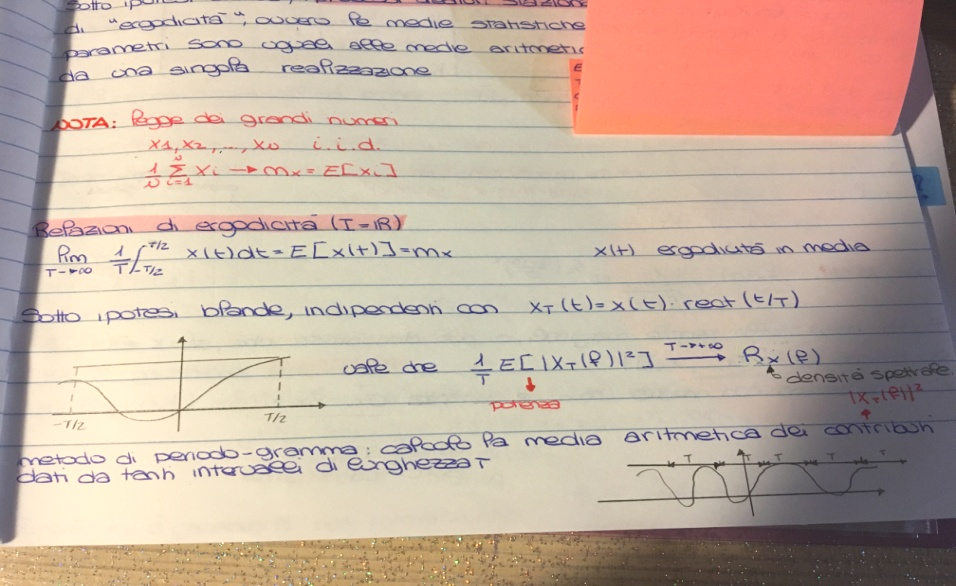 Sotto
di "ergodicità", ovvero le medie statistiche
parametri sono uguali alle medie aritmetic
da una singola realizzazione
NOTA: Legge dei grandi numeri
x1, x2, ..., xN i.i.d.
1/N ∑_{i=1}^{N} xi → mx = E[xi]
Relazioni di ergodicità (T=ℝ)
lim_{T→∞} 1/T ∫_{-T/2}^{T/2} x(t)dt = E[x(t)] = mx x(t) ergodicità in media
Sotto ipotesi blande, indipendenti con xT(t) = x(t)· rect(t/T)
vale che 1/T E[|XT(f)|²] T→+∞ → Rx(f)
densità spettrale
potenza
|XT(f)|²
-T/2 T/2
metodo di periodo-gramma: calcolo la media aritmetica dei contributi
dati da tanti intervalli di lunghezza T
T T T T T